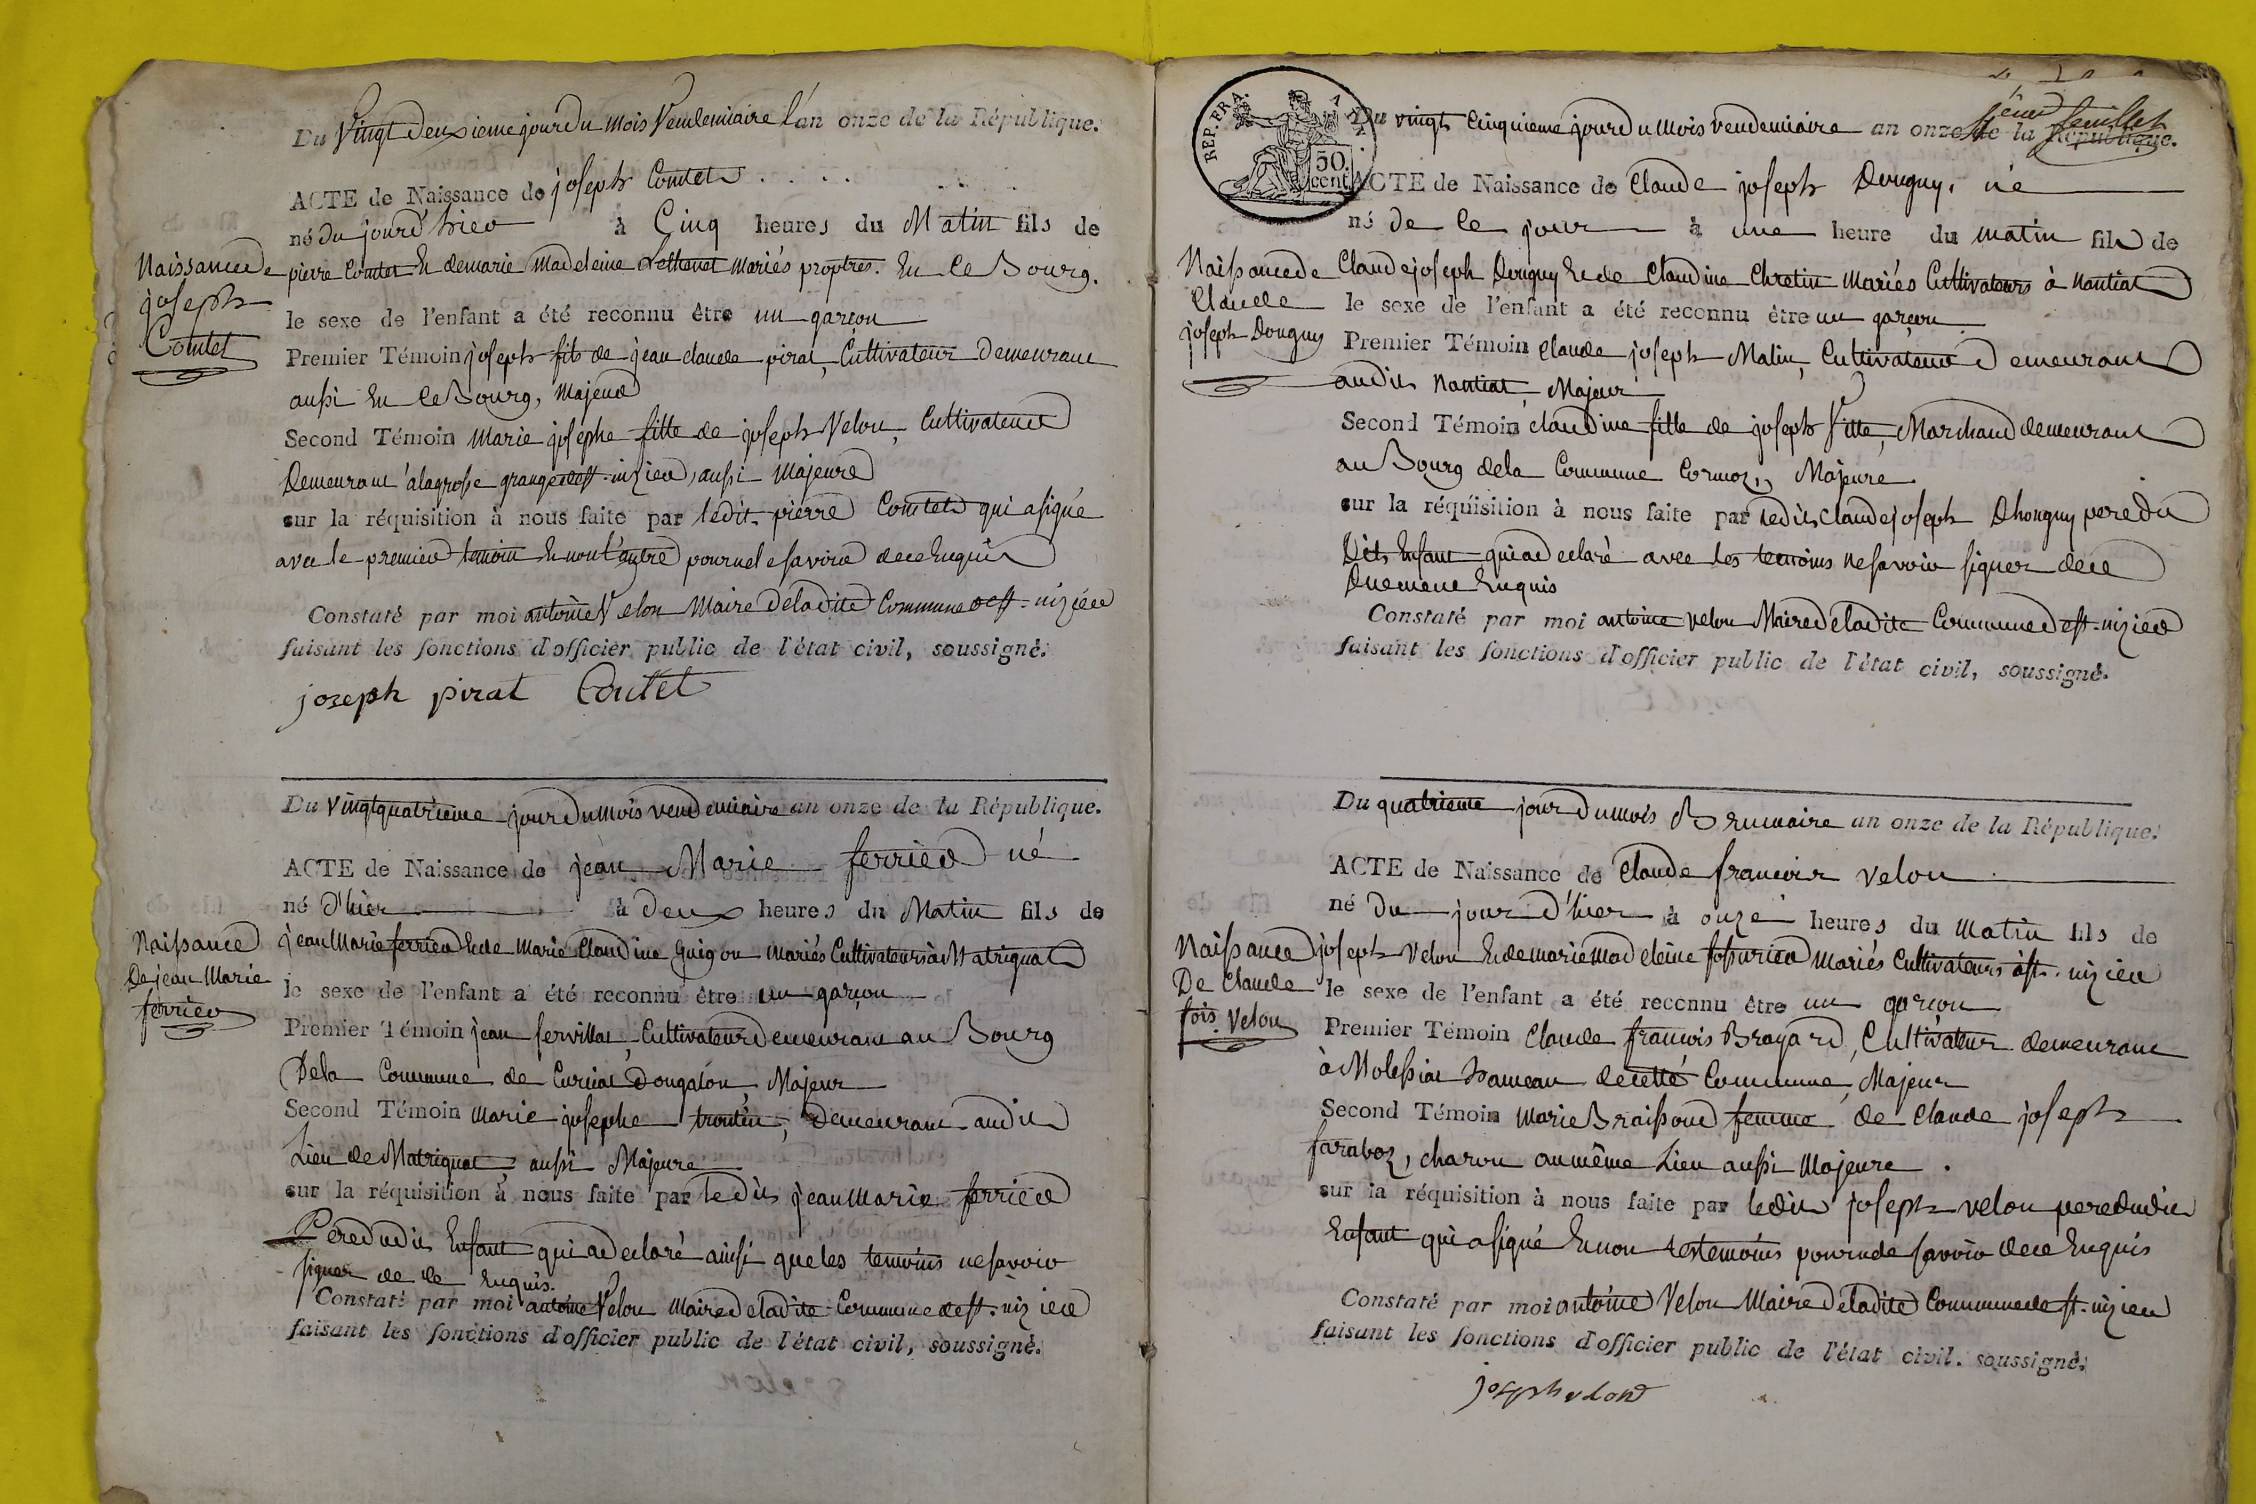 Du Vingt Deuxieme jour du mois Vendemiaire l'an onze de la République.
ACTE de Naissance de joseph Comtet
né du jourd'hier à Cinq heures du Matin fils de
pierre Comtet Et de marie Madeleine mariés proptres. En ce Bourg.
Naissance de
joseph
Comtet
le sexe de l'enfant a été reconnu être un garçon
Premier Témoin joseph fils de jean claude pirat, Cultivateur Demeurant
aussi En ce Bourg, Majeur
Second Témoin Marie josephe fille de joseph Velon, Cultivateur
Demeurant à la grosse grange de st. nizier, aussi Majeure
sur la réquisition à nous faite par ledit pierre Comtet qui a signé
avec le premier temoin Et non l'autre pour ne le savoir de ce Enquis
Constaté par moi antoine Velon Maire de ladite Commune de st. nizier
faisant les fonctions d'officier public de l'état civil, soussigné.
joseph pirat Comtet
Du Vingt quatrieme jour du mois vendemiaire an onze de la République.
ACTE de Naissance de jean Marie ferrier né
né d'hier à Deux heures du Matin fils de
jean Marie ferrier Et de Marie Claudine Guigon mariés Cultivateurs à Matrignat
Naissance
De jean Marie
ferrier
le sexe de l'enfant a été reconnu être un garçon
Premier Témoin jean servillat, Cultivateur Demeurant au Bourg
De la Commune de Curciat Dongalon, Majeur
Second Témoin Marie josephe, Demeurant audit
Lieu de Matrignat, aussi Majeure
sur la réquisition à nous faite par ledit jean Marie ferrier
Pere dudit Enfant qui a declaré ainsi que les temoins ne savoir
signer de ce Enquis.
Constaté par moi antoine Velon Maire de ladite Commune de st. nizier
faisant les fonctions d'officier public de l'état civil, soussigné.
REP. FRA.
50
cent
feuillet
Du vingt Cinquieme jour du Mois vendemiaire an onze de la République.
ACTE de Naissance de Claude joseph Dougny, né
né de ce jour à une heure du matin fils de
Claude joseph Dougny Et de Claudine Chretin Mariés Cultivateurs à Nantiat
Naissance de
Claude
joseph Dougny
le sexe de l'enfant a été reconnu être un garçon
Premier Témoin Claude joseph Matin, Cultivateur Demeurant
audit Nantiat, Majeur
Second Témoin claudine fille de joseph Vitte, Marchand demeurant
au Bourg de la Commune Cormoz, Majeure
sur la réquisition à nous faite par ledit Claude joseph Dhougny pere du
Dit Enfant qui a declaré avec les temoins ne savoir signer de ce
Duement Enquis
Constaté par moi antoine velon Maire de ladite Commune de st. nizier
faisant les fonctions d'officier public de l'état civil, soussigné.
Du quatrieme jour du mois Brumaire an onze de la République.
ACTE de Naissance de Claude francois velon
né Du jour d'hier à onze heures du Matin fils de
joseph Velon Et de marie Madeleine mariés Cultivateurs à st. nizier
Naissance
De Claude
fois. Velon
le sexe de l'enfant a été reconnu être un garçon
Premier Témoin Claude francois Broyard, Cultivateur demeurant
à Molissiat hameau de cette Commune, Majeur
Second Témoin Marie femme de Claude joseph
faraboz, charon au même Lieu aussi Majeure.
sur la réquisition à nous faite par ledit joseph velon pere dudit
Enfant qui a signé Et non les temoins pour ne le savoir de ce Enquis
Constaté par moi antoine Velon Maire de ladite Commune de st. nizier
faisant les fonctions d'officier public de l'état civil. soussigné.
joseph velon